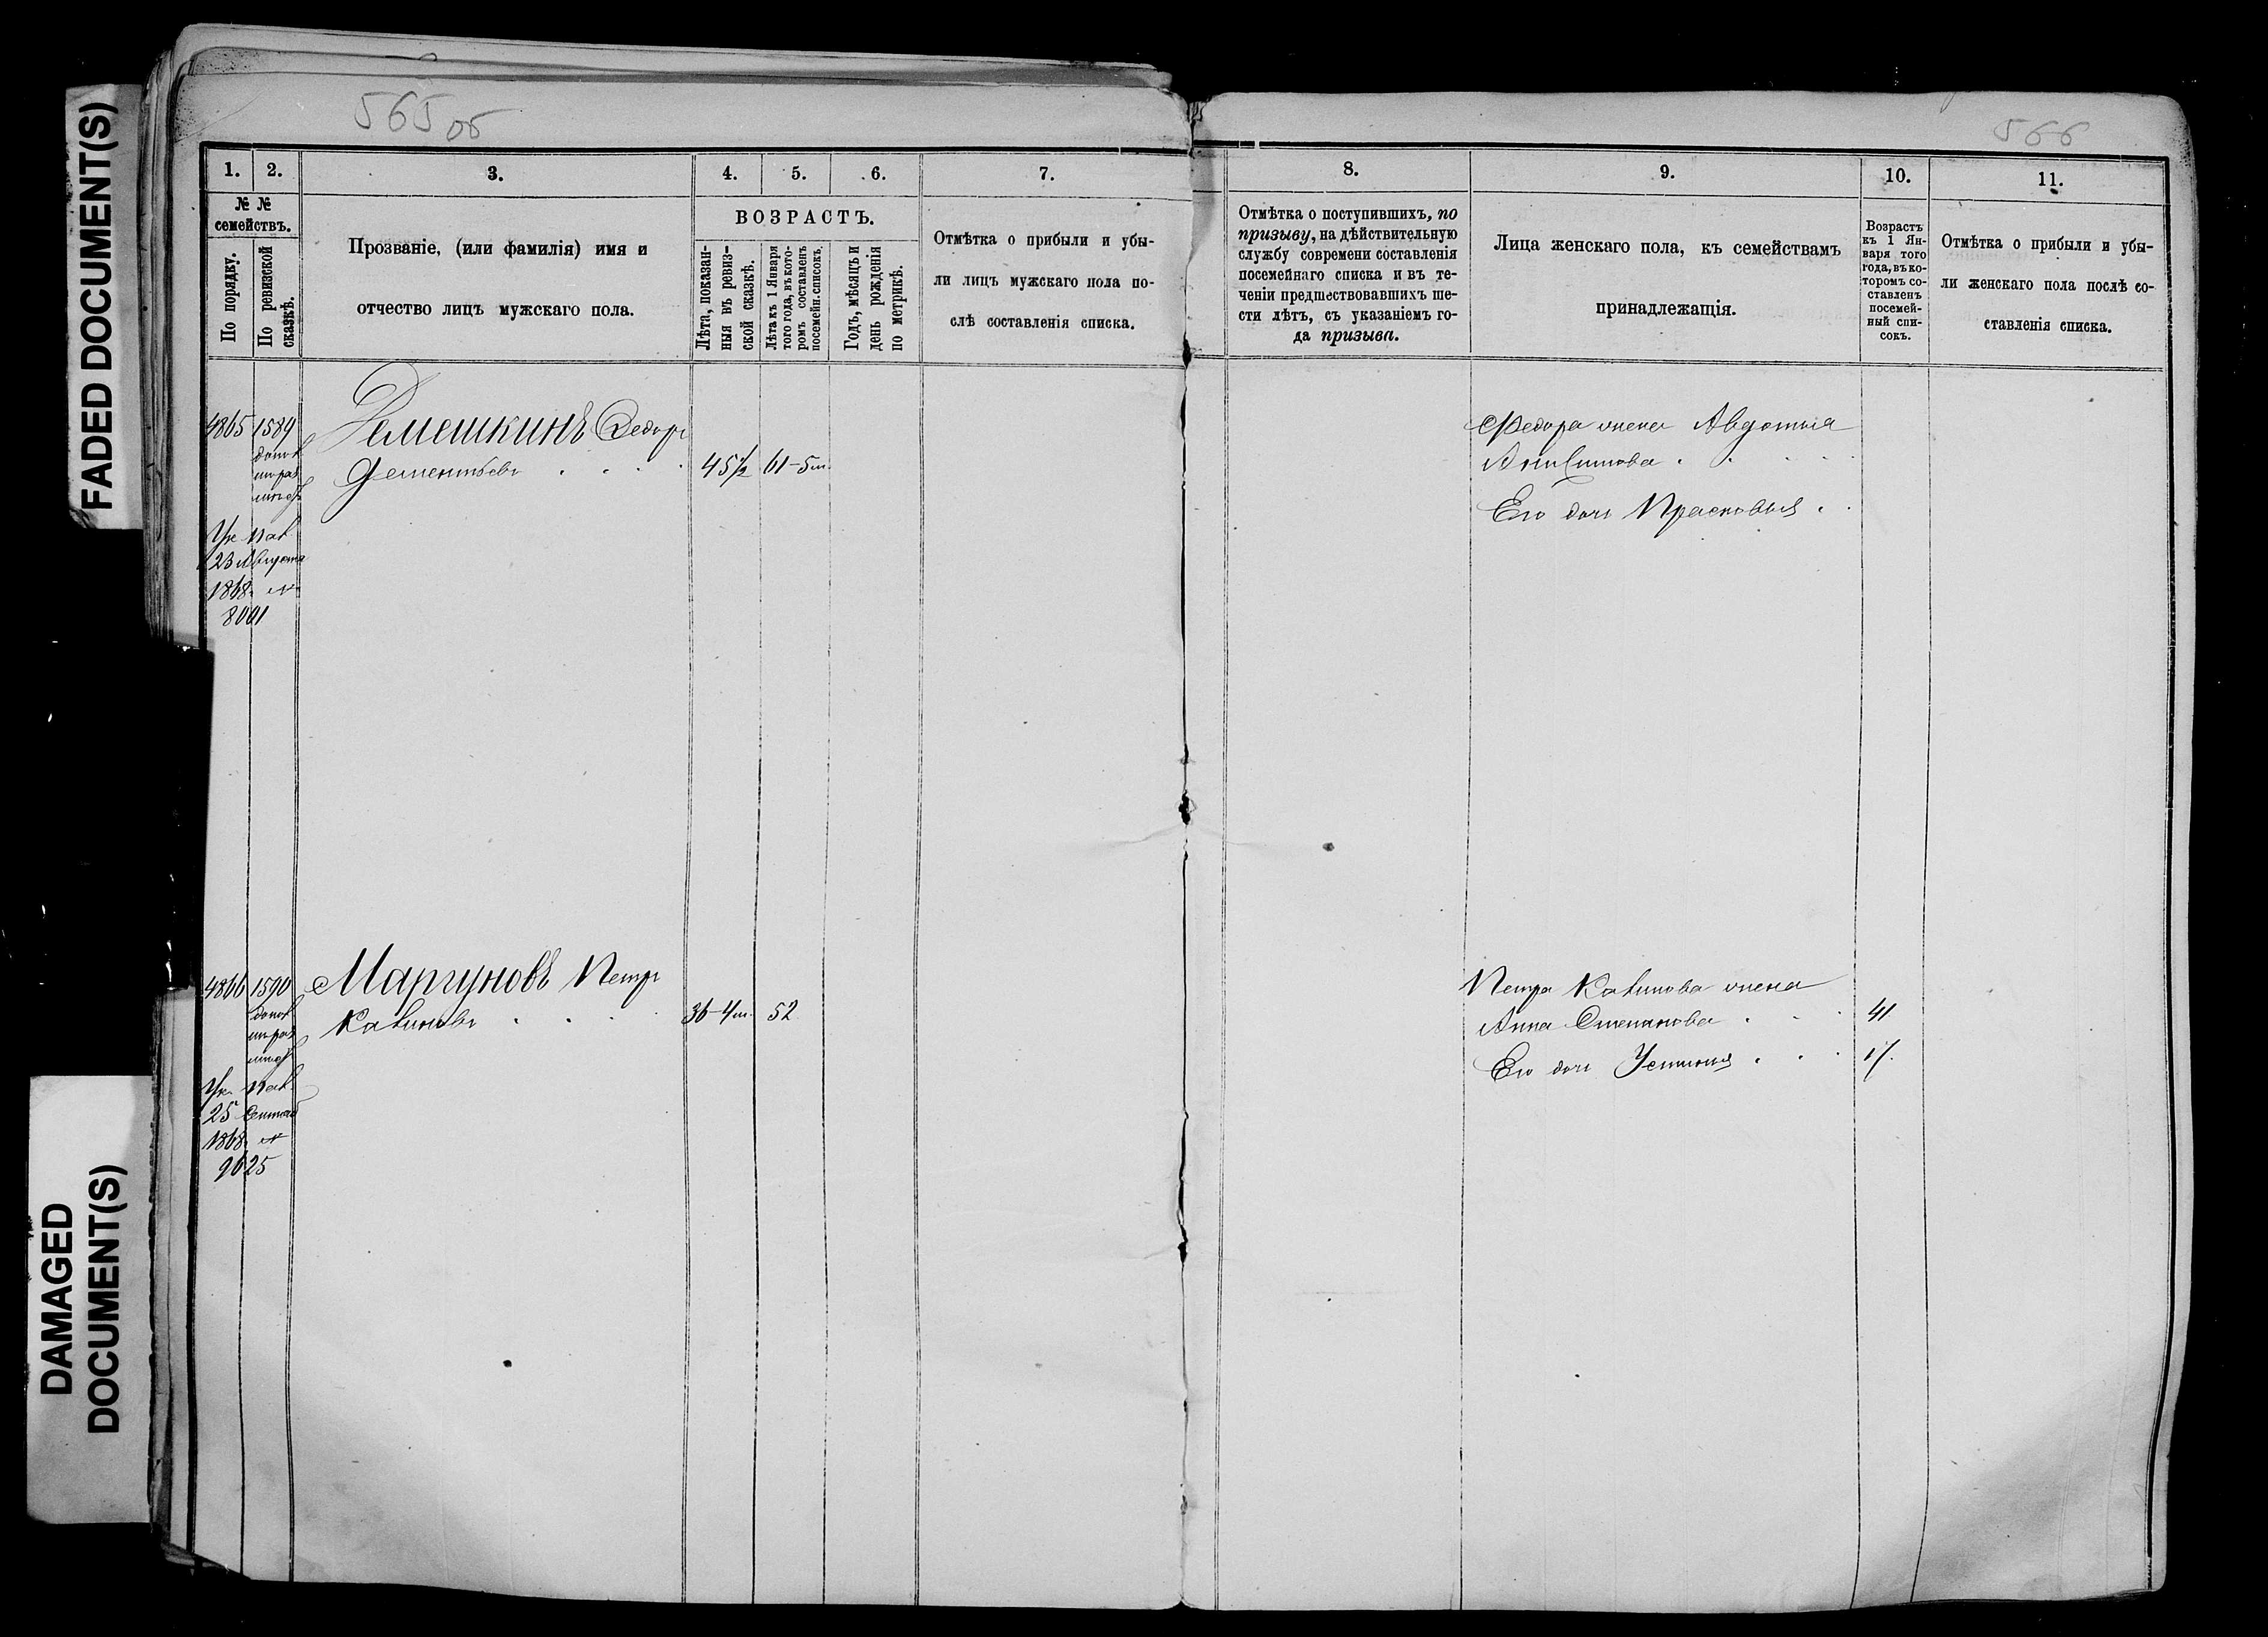 FADED DOCUMENT(S)
DAMAGED
DOCUMENT(S)
565 об
566
1.
2.
3.
4.
5.
6.
7.
№ №
семействъ.
По порядку.
По ревизской
сказкѣ.
Прозваніе, (или фамилія) имя и
отчество лицъ мужскаго пола.
ВОЗРАСТЪ.
Лѣта, показан-
ныя въ ревиз-
ской сказкѣ.
Лѣта къ 1 Января
того года, въ кото-
ромъ составленъ
посемейн. списокъ.
Годъ, мѣсяцъ и
день рожденія
по метрикѣ.
Отмѣтка о прибыли и убы-
ли лицъ мужскаго пола по-
слѣ составленія списка.
8.
9.
10.
11.
Отмѣтка о поступившихъ, по
призыву, на дѣйствительную
службу современи составленія
посемейнаго списка и въ те-
ченіи предшествовавшихъ ше-
сти лѣтъ, съ указаніемъ го-
да призыва.
Лица женскаго пола, къ семействамъ
принадлежащія.
Возрастъ
къ 1 Ян-
варя того
года, въ ко-
торомъ со-
ставленъ
посемей-
ный спи-
сокъ.
Отмѣтка о прибыли и убы-
ли женскаго пола послѣ со-
ставленія списка.
4865 1589 Демешкинъ Федоръ
Дементьевъ 45½ 61-5м.
Ук. Пал.
23 Августа
1868 №
8001
Федора жена Авдотья
Его дочь Прасковья
4866 1590 Маргуновъ Петръ
36-4м. 52
Ук. Пал.
25 Сентяб
1868 №
9625
Петра жена
Анна Степанова 41
Его дочь Устинья 17.